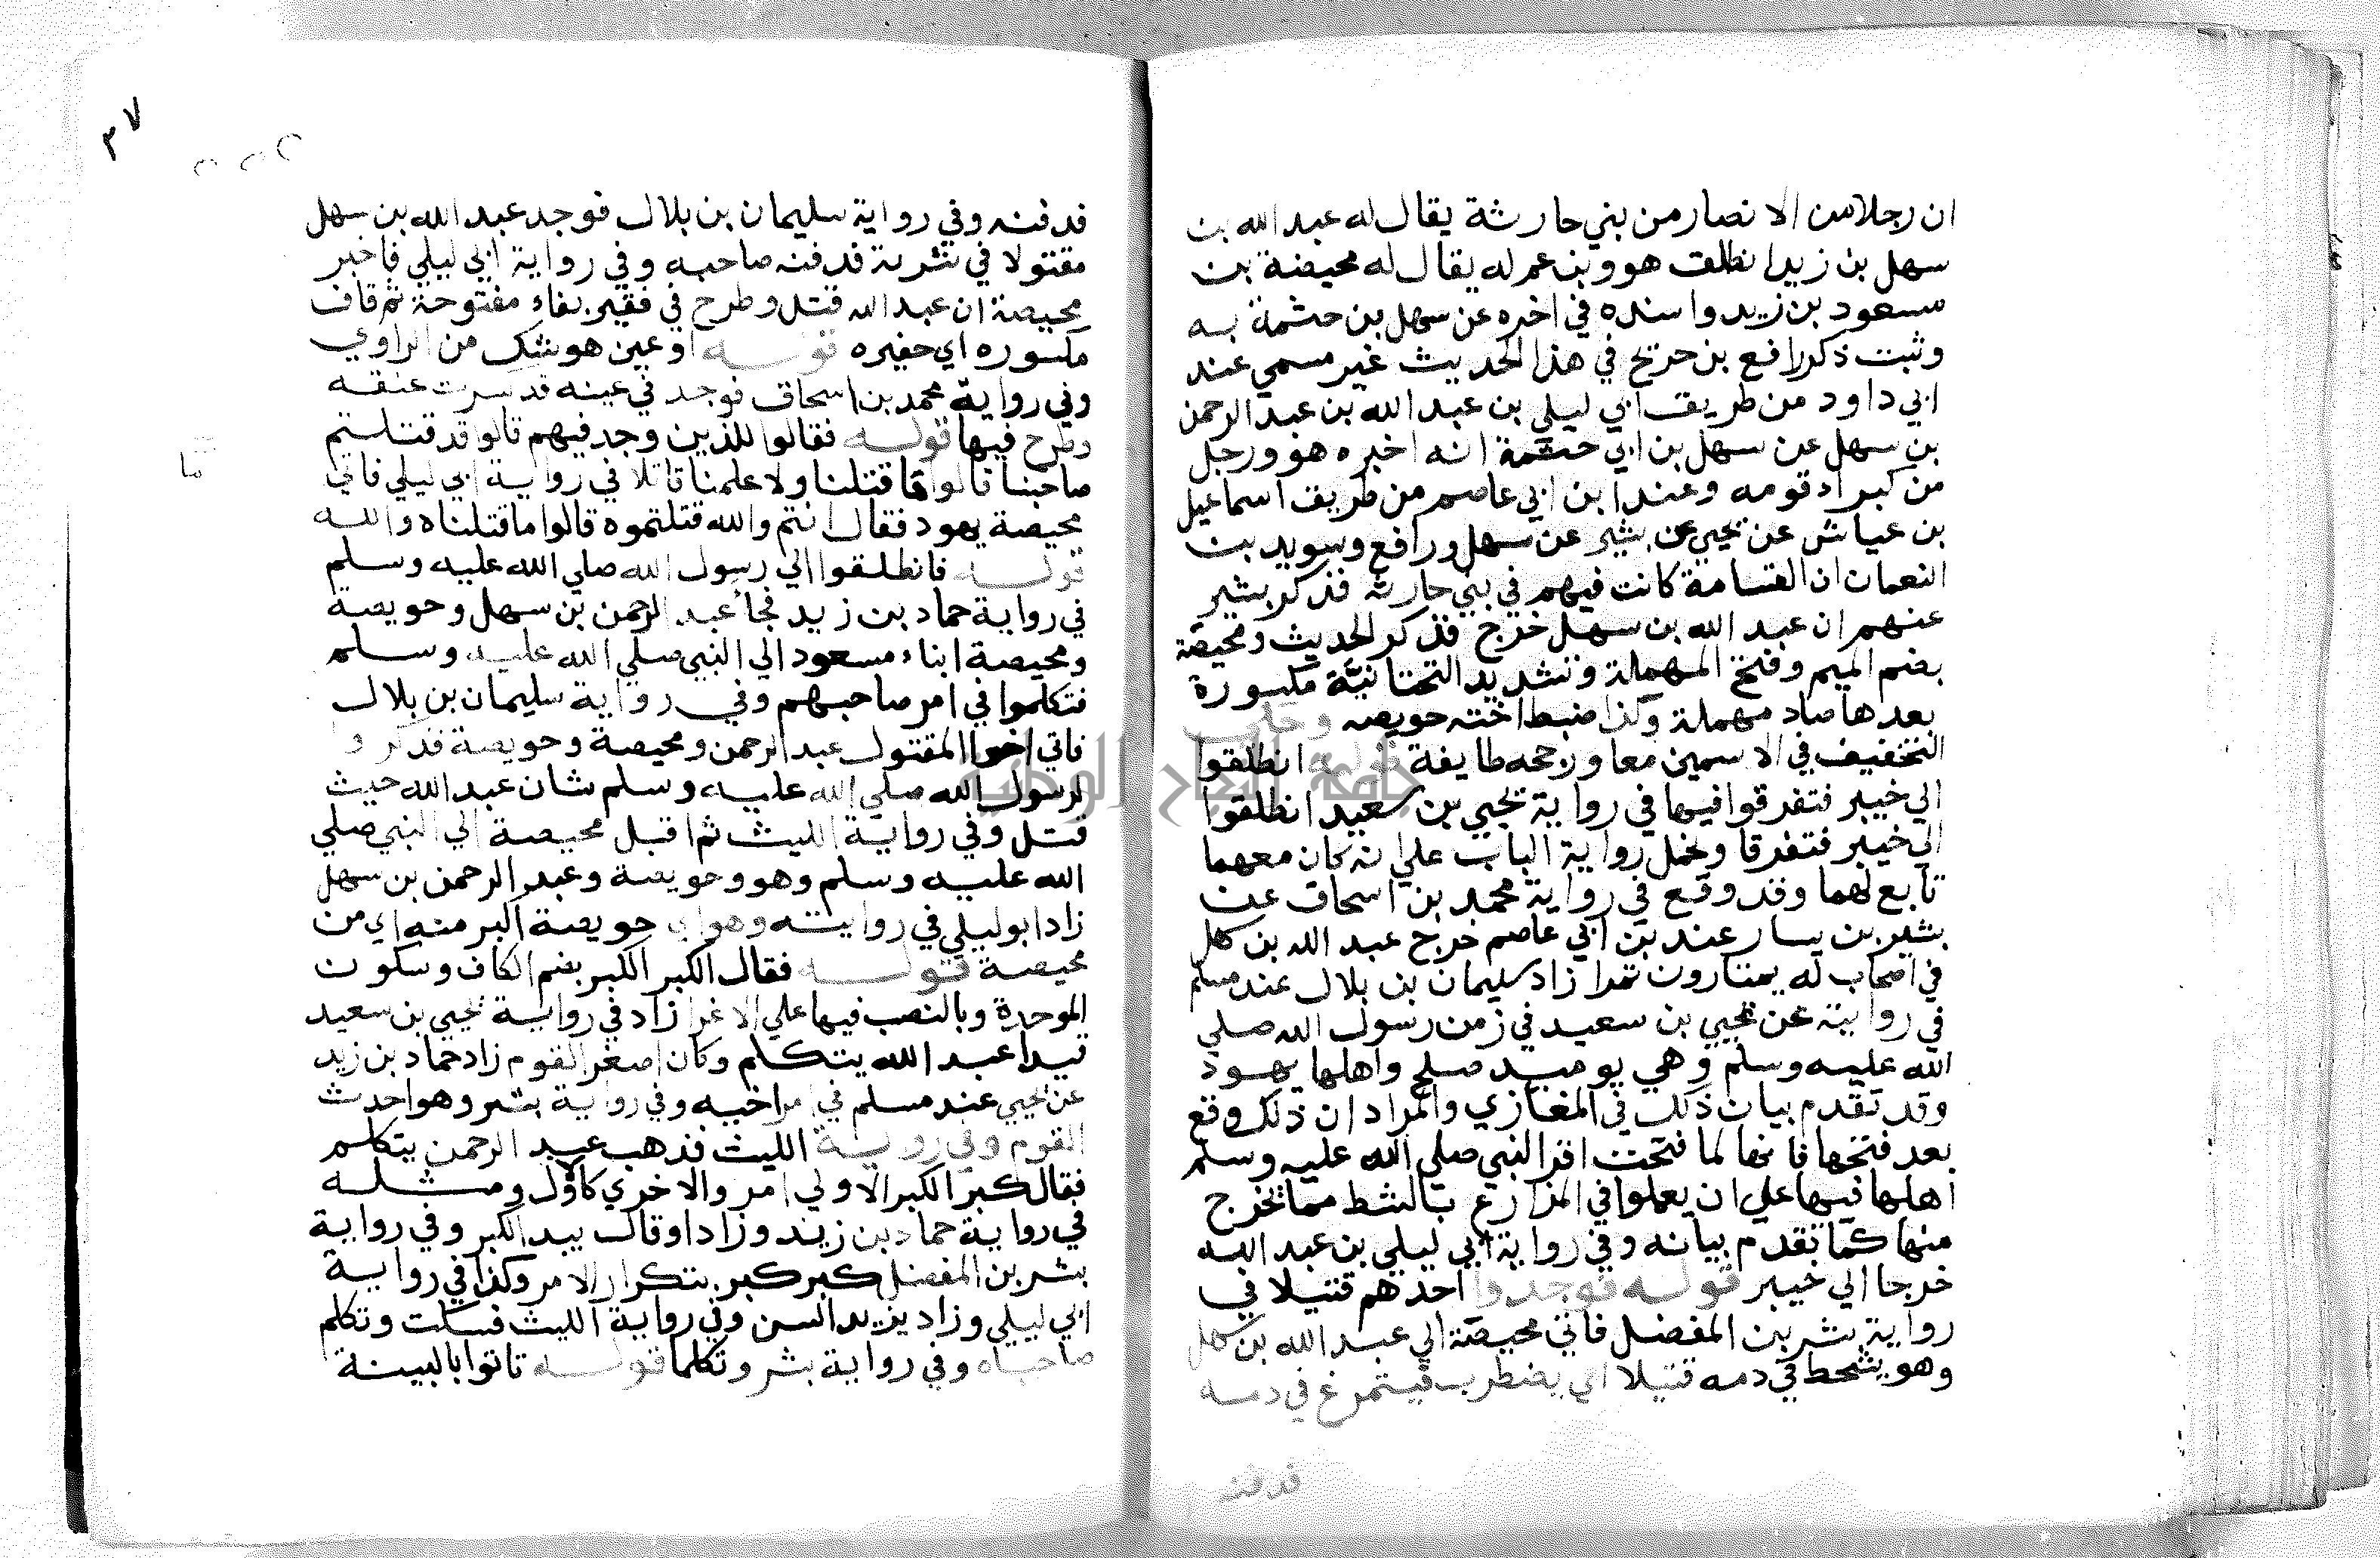 ان رجلا من الانصار من بني حارثة يقال له عبد الله بن
سهل بن زيد انطلق هو وبن عم له يقال له محيصة بن
مسعود بن زيد واسنده في اخره عن سهل بن حثمة به
وثبت ذكر رافع بن خريج في هذا الحديث غير مسمي عند
ابي داود من طريق ابي ليلي بن عبد الله بن عبد الرحمن
بن سهل عن سهل بن ابي حثمة انه اخبره هو ورجل
من كبراد قومه وعند ابن ابي عاصم من طريق اسماعيل
بن عياش عن يحيي عن بشير عن سهل ورافع وسويد بن
النعمان ان القسامة كانت فيهم في بني حارثة فذكر بشير
عنهم ان عبد الله بن سهل خرج فذكر الحديث ومحيصة
بضم الميم وفتح المهملة وتشديد التحتانية مكسورة
بعدها صاد مهملة وكذا ضبط اخته حويصه وحكي
التخفيف في الاسمين معا ورجحه طايفة قوله انطلقوا
الي خيبر فتفرقوا فيها في رواية يحيي بن سعيد انطلقوا
الي خيبر فتفرقا وتحمل رواية الباب علي انه كان معهما
تابع لهما وقد وقع في رواية محمد بن اسحاق عن
بشير بن يسار عند بن ابي عاصم خرج عبد الله بن سهل
في اصحاب له يمتارون تمرا زاد سليمان بن بلال عند مسلم
في روايته عن يحيي بن سعيد في زمن رسول الله صلي
الله عليه وسلم وهي يوميد صلح واهلها يهود
وقد تقدم بيان ذلك في المغازي والمراد ان ذلك وقع
بعد فتحها فانها لما فتحت اقر النبي صلي الله عليه وسلم
اهلها فيها علي ان يعملوا في المزارع بالشط مما يخرج
منها كما تقدم بيانه وفي رواية ابي ليلي بن عبد الله
خرجا الي خيبر قوله فوجدوا احدهم قتيلا في
رواية بشر بن المفضل فاتي محيصة الي عبد الله بن سهل
وهو يشحط في دمه قتيلا اي يضطرب فيتمرغ في دمه
فدفنه
٣٧
فدفنه وفي رواية سليمان بن بلال فوجد عبد الله بن سهل
مقتولا في شربة فدفنه صاحبه وفي رواية ابي ليلي فاخبر
محيصة ان عبد الله قتل وطرح في فقير بفاء مفتوحة ثم قاف
مكسوره اي حفيره قوله او عين هو شك من الراوي
وفي رواية محمد بن اسحاق فوجد في عينه قد كسرت عنقه
وطرح فيها قوله فقالوا للذين وجد فيهم قالوا قد قتلتم
صاحبنا قالوا ما قتلنا ولا علمنا قاتلا في رواية ابي ليلي فاتي
محيصة يهود فقال انتم والله قتلتموه قالوا ما قتلناه والله
قوله فانطلقوا الي رسول الله صلي الله عليه وسلم
في رواية حماد بن زيد فجا عبد الرحمن بن سهل وحويصة
ومحيصة ابناء مسعود الي النبي صلي الله عليه وسلم
فتكلموا في امر صاحبهم وفي رواية سليمان بن بلال
فاتي اخوا المقتول عبد الرحمن ومحيصة وحويصة فذكروا
لرسول الله صلي الله عليه وسلم شان عبد الله حيث
قتل وفي رواية الليث ثم اقبل محيصة الي النبي صلي
الله عليه وسلم وهو وحويصة وعبد الرحمن بن سهل
زاد ابو ليلي في روايته وهو اي حويصة اكبر منه اي من
محيصة قوله فقال الكبر الكبر بضم الكاف وسكون
الموحدة وبالنصب فيها علي الاغرا زاد في رواية يحيي بن سعيد
فبدا عبد الله يتكلم وكان اصغر القوم زاد حماد بن زيد
عن يحيي عند مسلم في امر اخيه وفي رواية بشر وهو احدث
القوم وفي رواية الليث فذهب عبد الرحمن يتكلم
فقال كبر الكبر الاولي امر والاخري كالاول ومثله
في رواية حماد بن زيد وزاد او قال يبدا الكبر وفي رواية
بشر بن المفضل كبر كبر بتكرار الامر وكذا في رواية
ابي ليلي وزاد يزيد السن وفي رواية الليث فسكت وتكلم
صاحباه وفي رواية بشر وتكلما قوله تاتوا بالبينة
ما
جامعة النجاح الوطنية